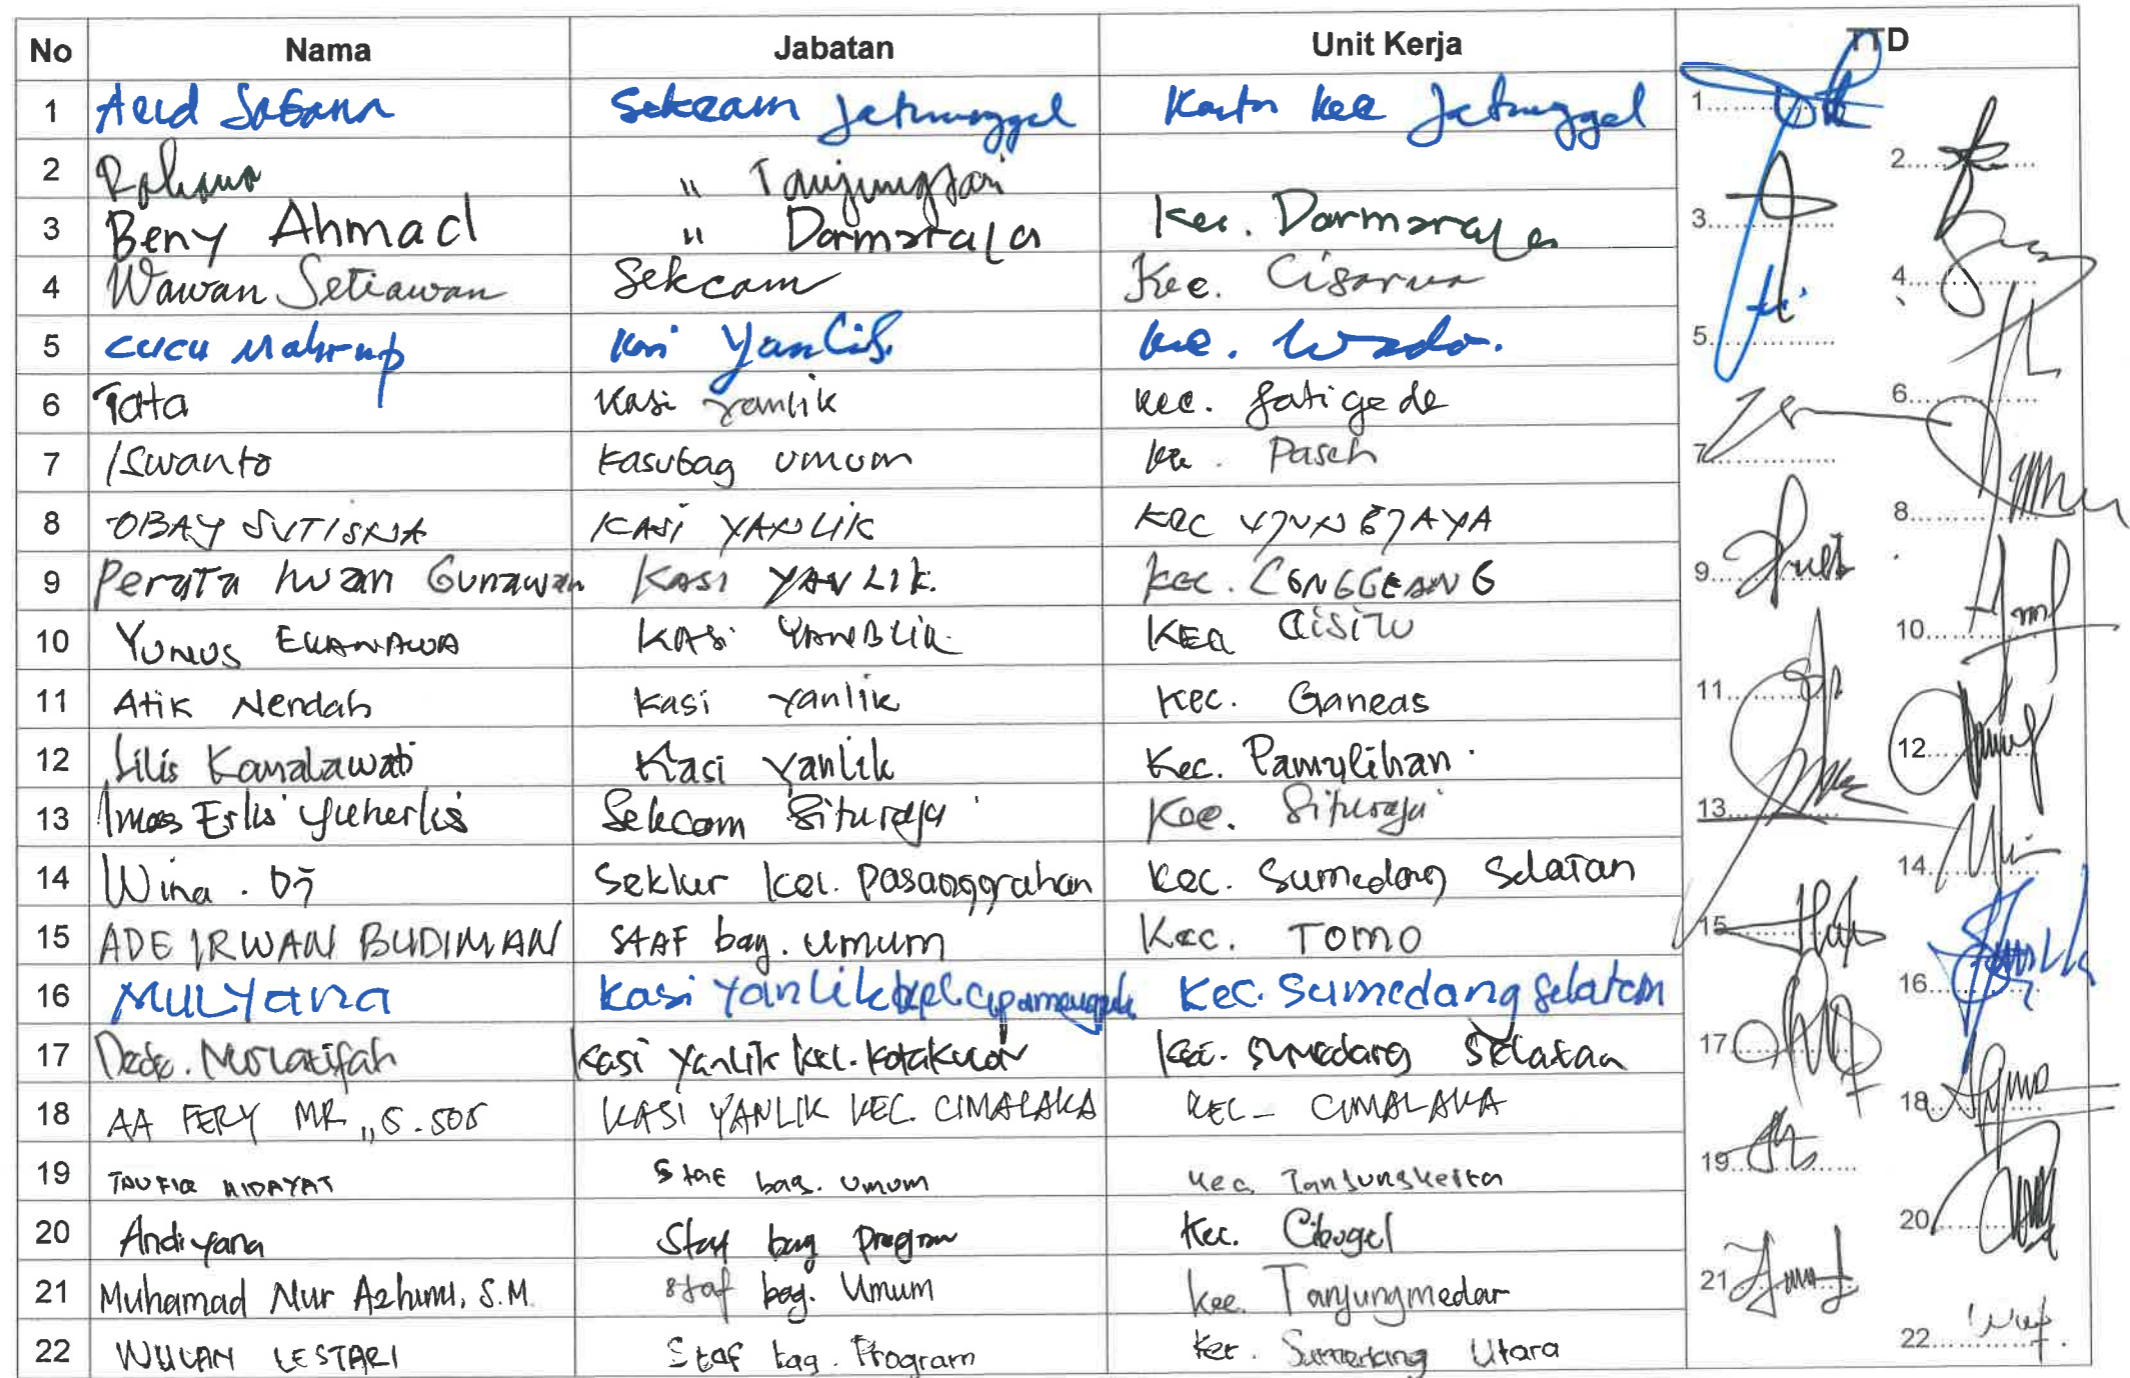 No Nama Jabatan Unit Kerja TTD
1 Sekcam Jatinunggal Kantor Kec Jatinunggal 1
2 Rohana " Tanjungsari 2
3 Beny Ahmad " Darmaraja Kec. Darmaraja 3
4 Wawan Setiawan Sekcam Kec. Cisarua 4
5 Cucu Mahrup Kasi Yanlik Kec. Wado. 5
6 Tata Kasi Yanlik Kec. Jatigede 6
7 Iswanto Kasubag Umum Kec. Paseh 7
8 OBAY SUTISNA KASI YANLIK KEC UJUNGJAYA 8
9 Perata Iwan Gunawan KASI YANLIK. KEC. CONGGEANG 9
10 YUNUS KASI YANBLIK KEC CISITU 10
11 Atik Nendah Kasi Yanlik Kec. Ganeas 11
12 Lilis Komalawati Kasi Yanlik Kec. Pamulihan 12
13 Imas Erlis Yuherlis Sekcam Situraja Kec. Situraja 13
14 Wina . Seklur Kel. Pasanggrahan Kec. Sumedang Selatan 14
15 ADE IRWAN BUDIMAN STAF bag. Umum Kec. TOMO 15
16 MULYana Kasi Yanlik Kel. Cipameungpeuk Kec. Sumedang Selatan 16
17 Dede. Nurlatifah Kasi Yanlik Kel. Kotakulon Kec. Sumedang Selatan 17
18 AA FERY MR KASI YANLIK KEC. CIMALAKA KEC - CIMALAKA 18
19 TAUFIQ HIDAYAT Staf bag. Umum Kec. Tanjungkerta 19
20 Andiyana Staf bag program Kec. Cibugel 20
21 Muhamad Nur Azhimi, S.M. Staf bag. Umum Kec. Tanjungmedar 21
22 WULAN LESTARI Staf bag. Program Kec. Sumedang Utara 22